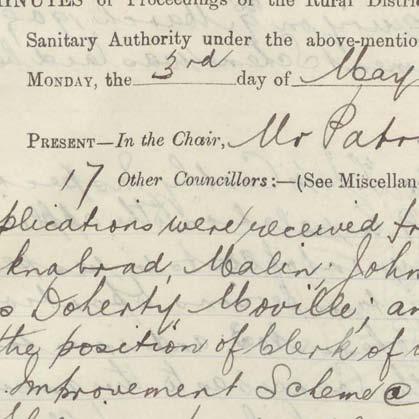 MINUTES of Proceedings of the Rural Distri
Sanitary Authority under the above-mentio
MONDAY, the 3rd day of May
PRESENT—In the Chair, Mr Patr
17 Other Councillors:—(See Miscellan
plications were received fr
knabrad, Malin; John
s Doherty, Moville; an
the position of Clerk of
. Improvement Scheme @